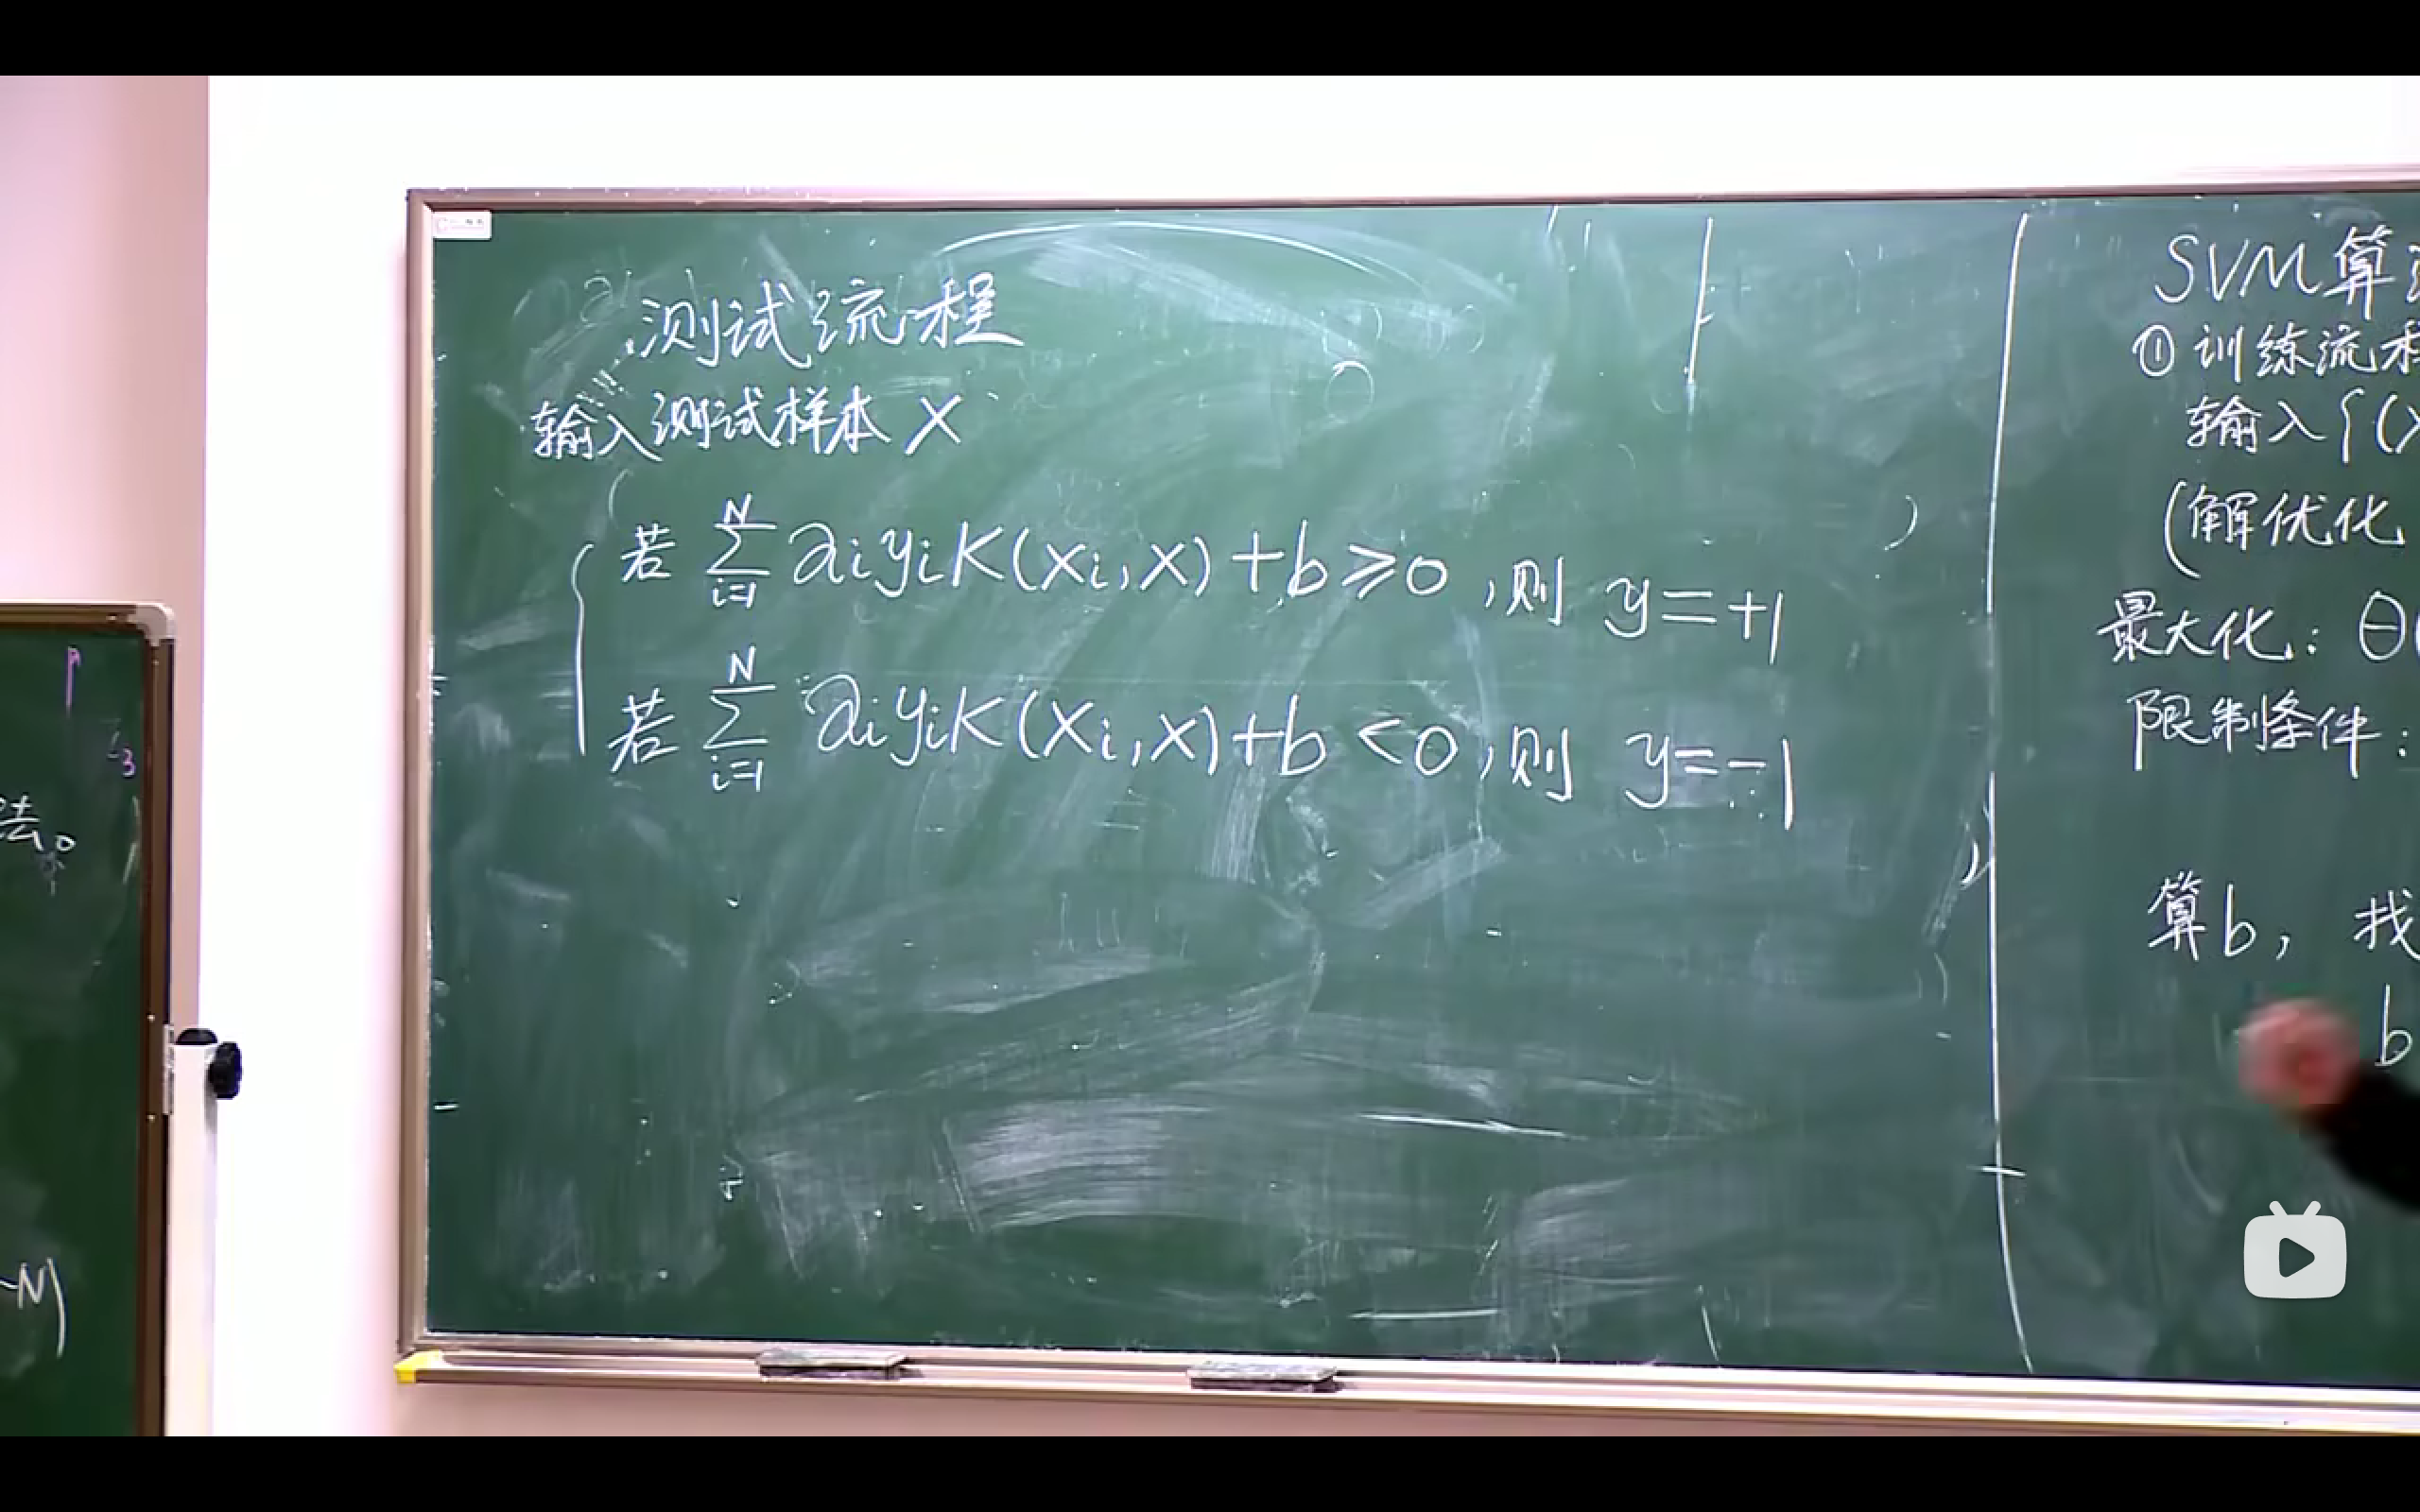 测试流程
输入测试样本 X
若 ∑_{i=1}^{N} αiyiK(Xi,X)+b≥0,则 y=+1
若 ∑_{i=1}^{N} αiyiK(Xi,X)+b<0,则 y=-1
SVM算
①训练流程
输入{(X
(解优化
最大化: θ(
限制条件:
算b, 找
b
法。
~N)